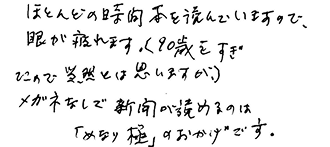 ほとんどの時間本を読んでいますので、
眼が疲れます。(90歳をすぎ
てるので当然とは思いますが)
メガネなしで新聞が読めるのは
「めなり極」のおかげです。